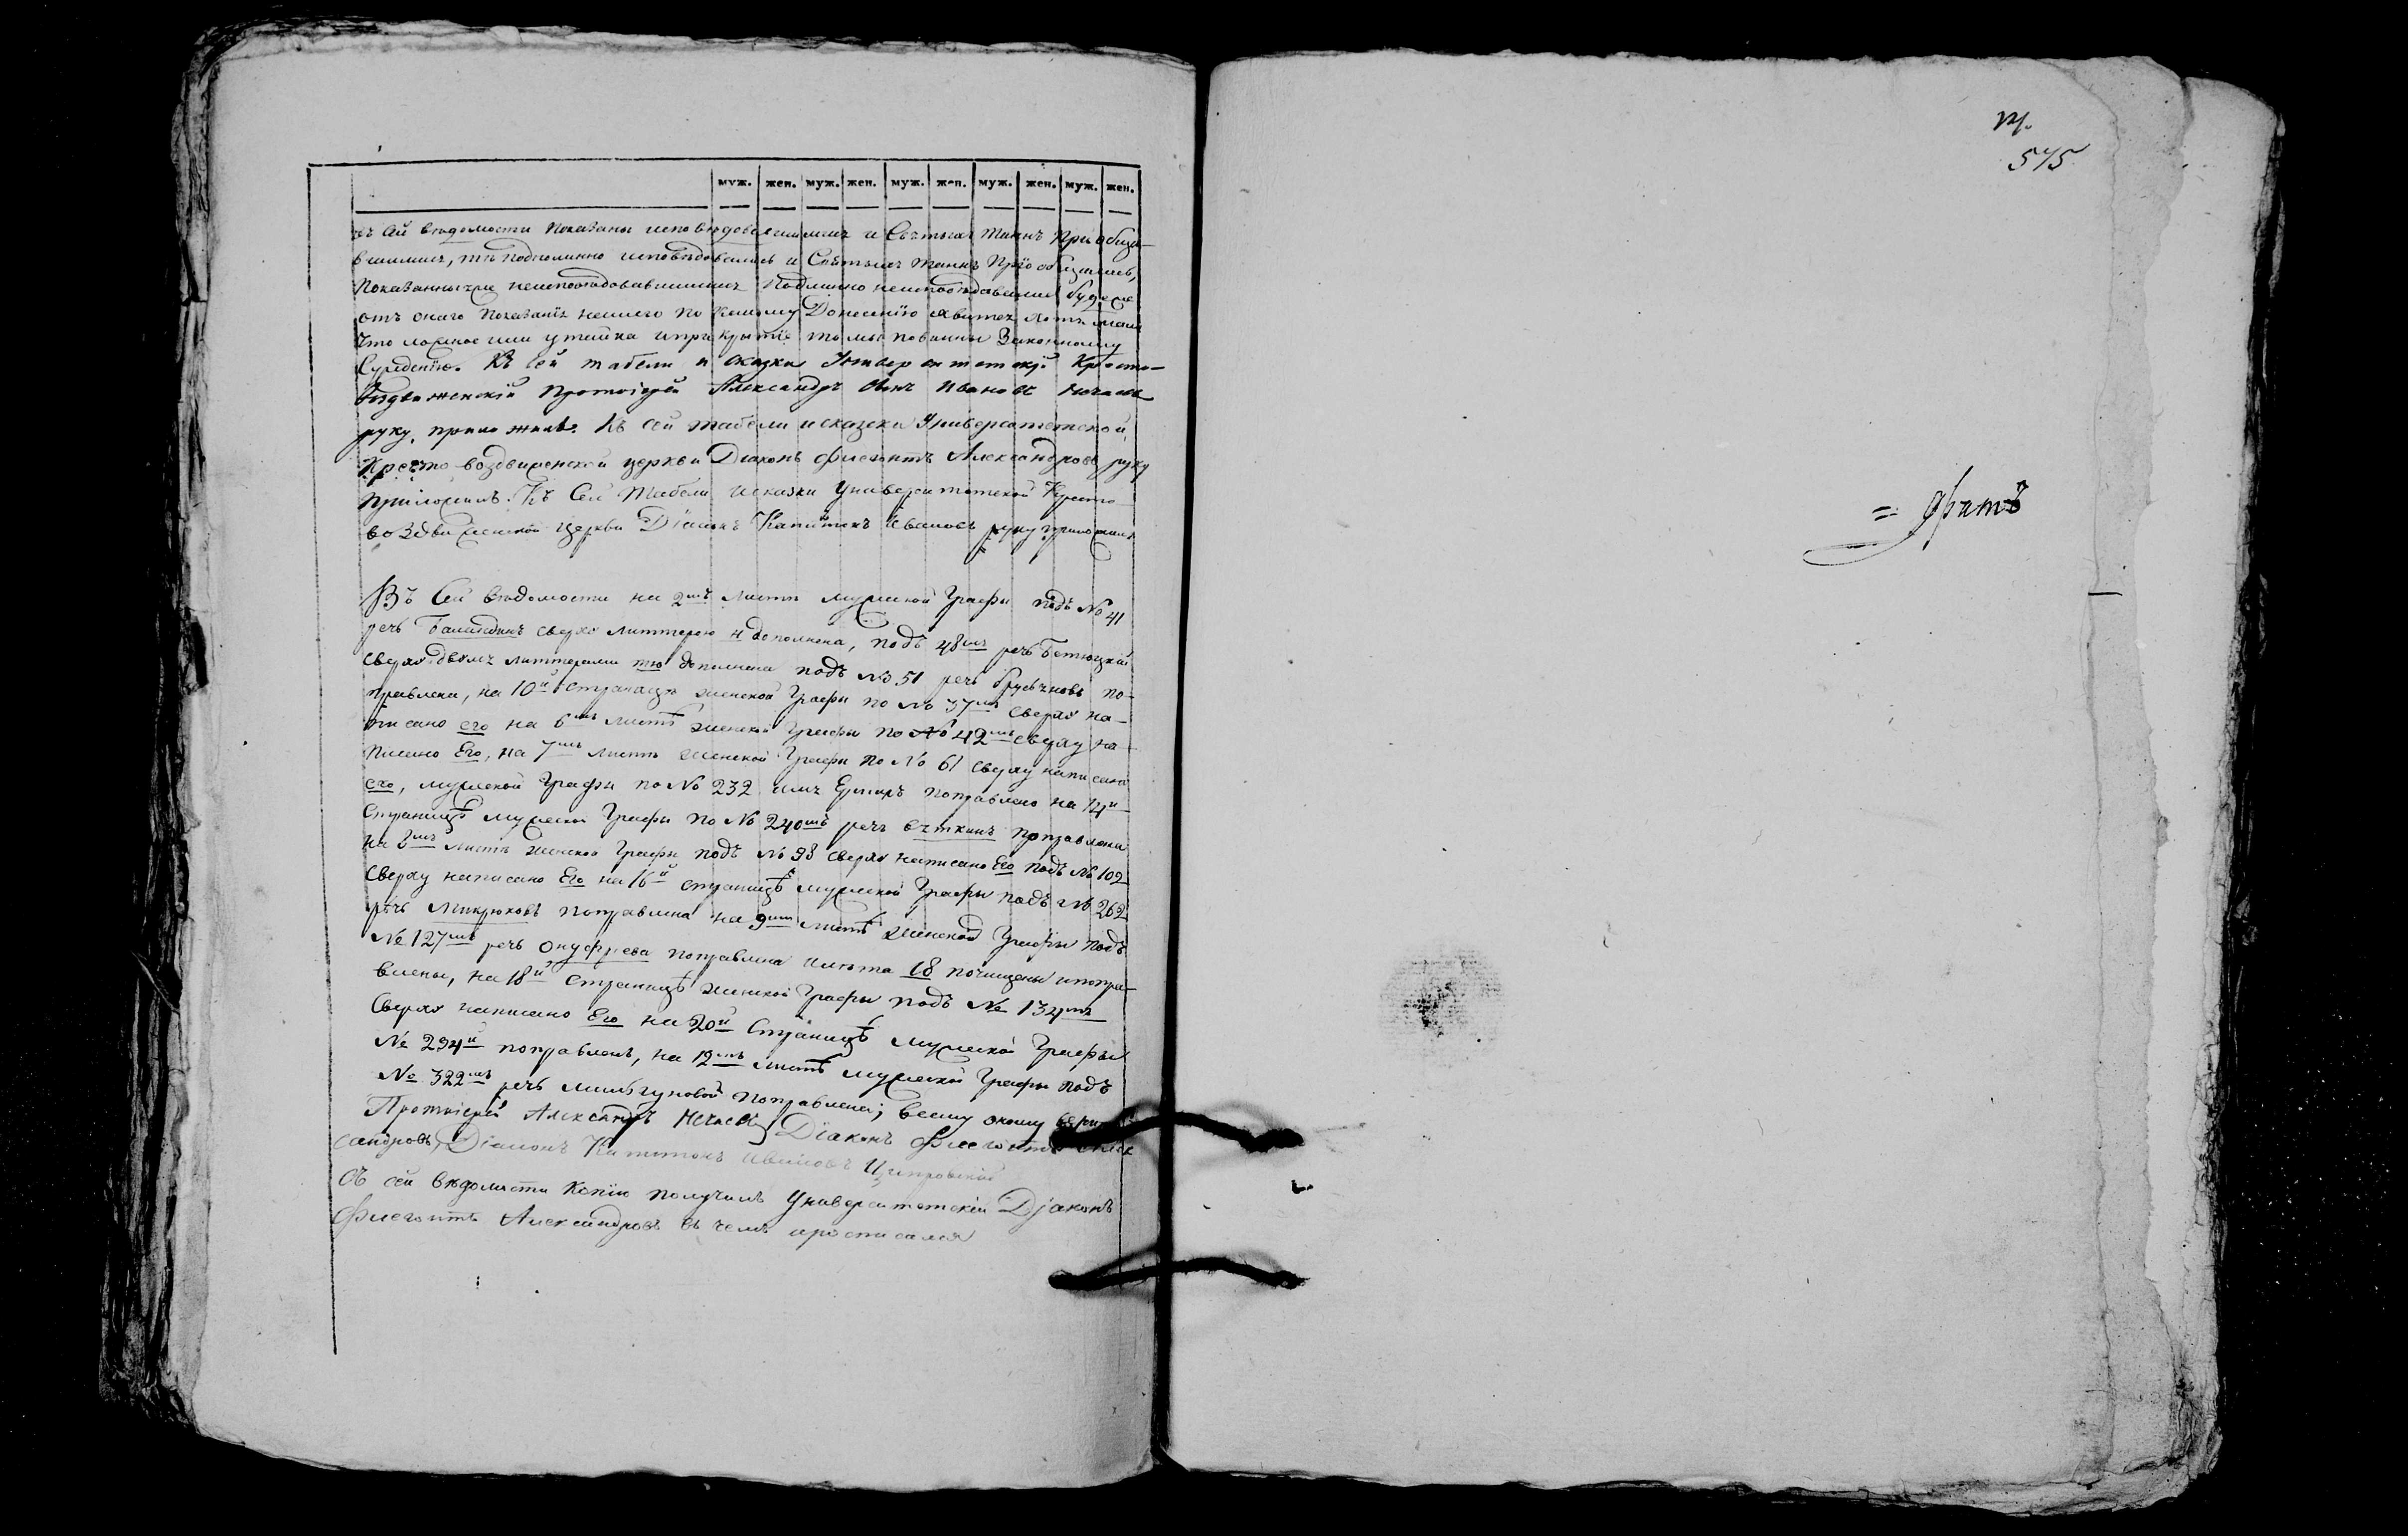 муж. жен. муж. жен. муж. жен. муж. жен. муж. жен.
въ сей вѣдомости показаны исповѣдовавшимися и Святыхъ Таинъ приобща-
вшимися, тѣ подлинно исповѣдовались и Святыхъ Таинъ приобщились,
показанныхъ неисповѣдовавшимися подлинно неисповѣдовались буде же
отъ онаго показанія нашего по чьему Донесенію явится хотя мало
что ложное или утайка и прикрытіе то мы повинны Законному
Сужденію. Къ сей табели и сказки Университетскій Кресто-
воздвиженскій Протоіерей Александръ Ивановъ Нечаевъ
руку приложилъ. Къ сей табели и сказки Университетской
Кресто-воздвиженской церкви Діаконъ Флегонтъ Александровъ руку
приложилъ. Къ Сей Табели и сказки Университетской Кресто-
воздвиженской Церкви Діаконъ Капитонъ Ивановъ руку приложилъ
Въ Сей вѣдомости на 2мъ листѣ мужеской Графы подъ № 41
речь Баландинъ сверху литтерою н дополнена, подъ 48мъ речь Бетюцкій
сверху двумя литтерами тю дополнена подъ № 51 речь Брусеновъ по-
правлена, на 10й страницѣ женской Графы по № 37мъ сверху на-
писано его на 6мъ листѣ женской Графы по № 42мъ сверху на-
писано Его, на 7мъ листѣ женской Графы по № 61 сверху написано
его, мужеской Графы по № 232 имя поправлено на 14й
Страницѣ мужеской Графы по № 240мъ речь поправлена
на 8мъ листѣ женской Графы подъ № 98 сверху написано Его подъ № 102
сверху написано Его на 16й страницѣ мужеской Графы подъ № 262
речь Микрюковъ поправлена на 9мъ листѣ женской Графы подъ
№ 127мъ речь Онуфрева поправлена и лѣта 18 почищены и попра-
влены, на 18й Страницѣ женской Графы подъ № 134мъ
Сверху написано Его на 20й Страницѣ мужеской Графы
№ 294й поправленъ, на 12мъ листѣ мужеской Графы подъ
№ 322мъ речь поправлена; всему оному
Протоіерей Александръ Нечаевъ Діаконъ Флегонтъ Алек
сандровъ, Діаконъ Капитонъ Ивановъ
Съ сей вѣдомости Копію получилъ Университетскій Діаконъ
Флегонтъ Александровъ въ чемъ и росписался
575